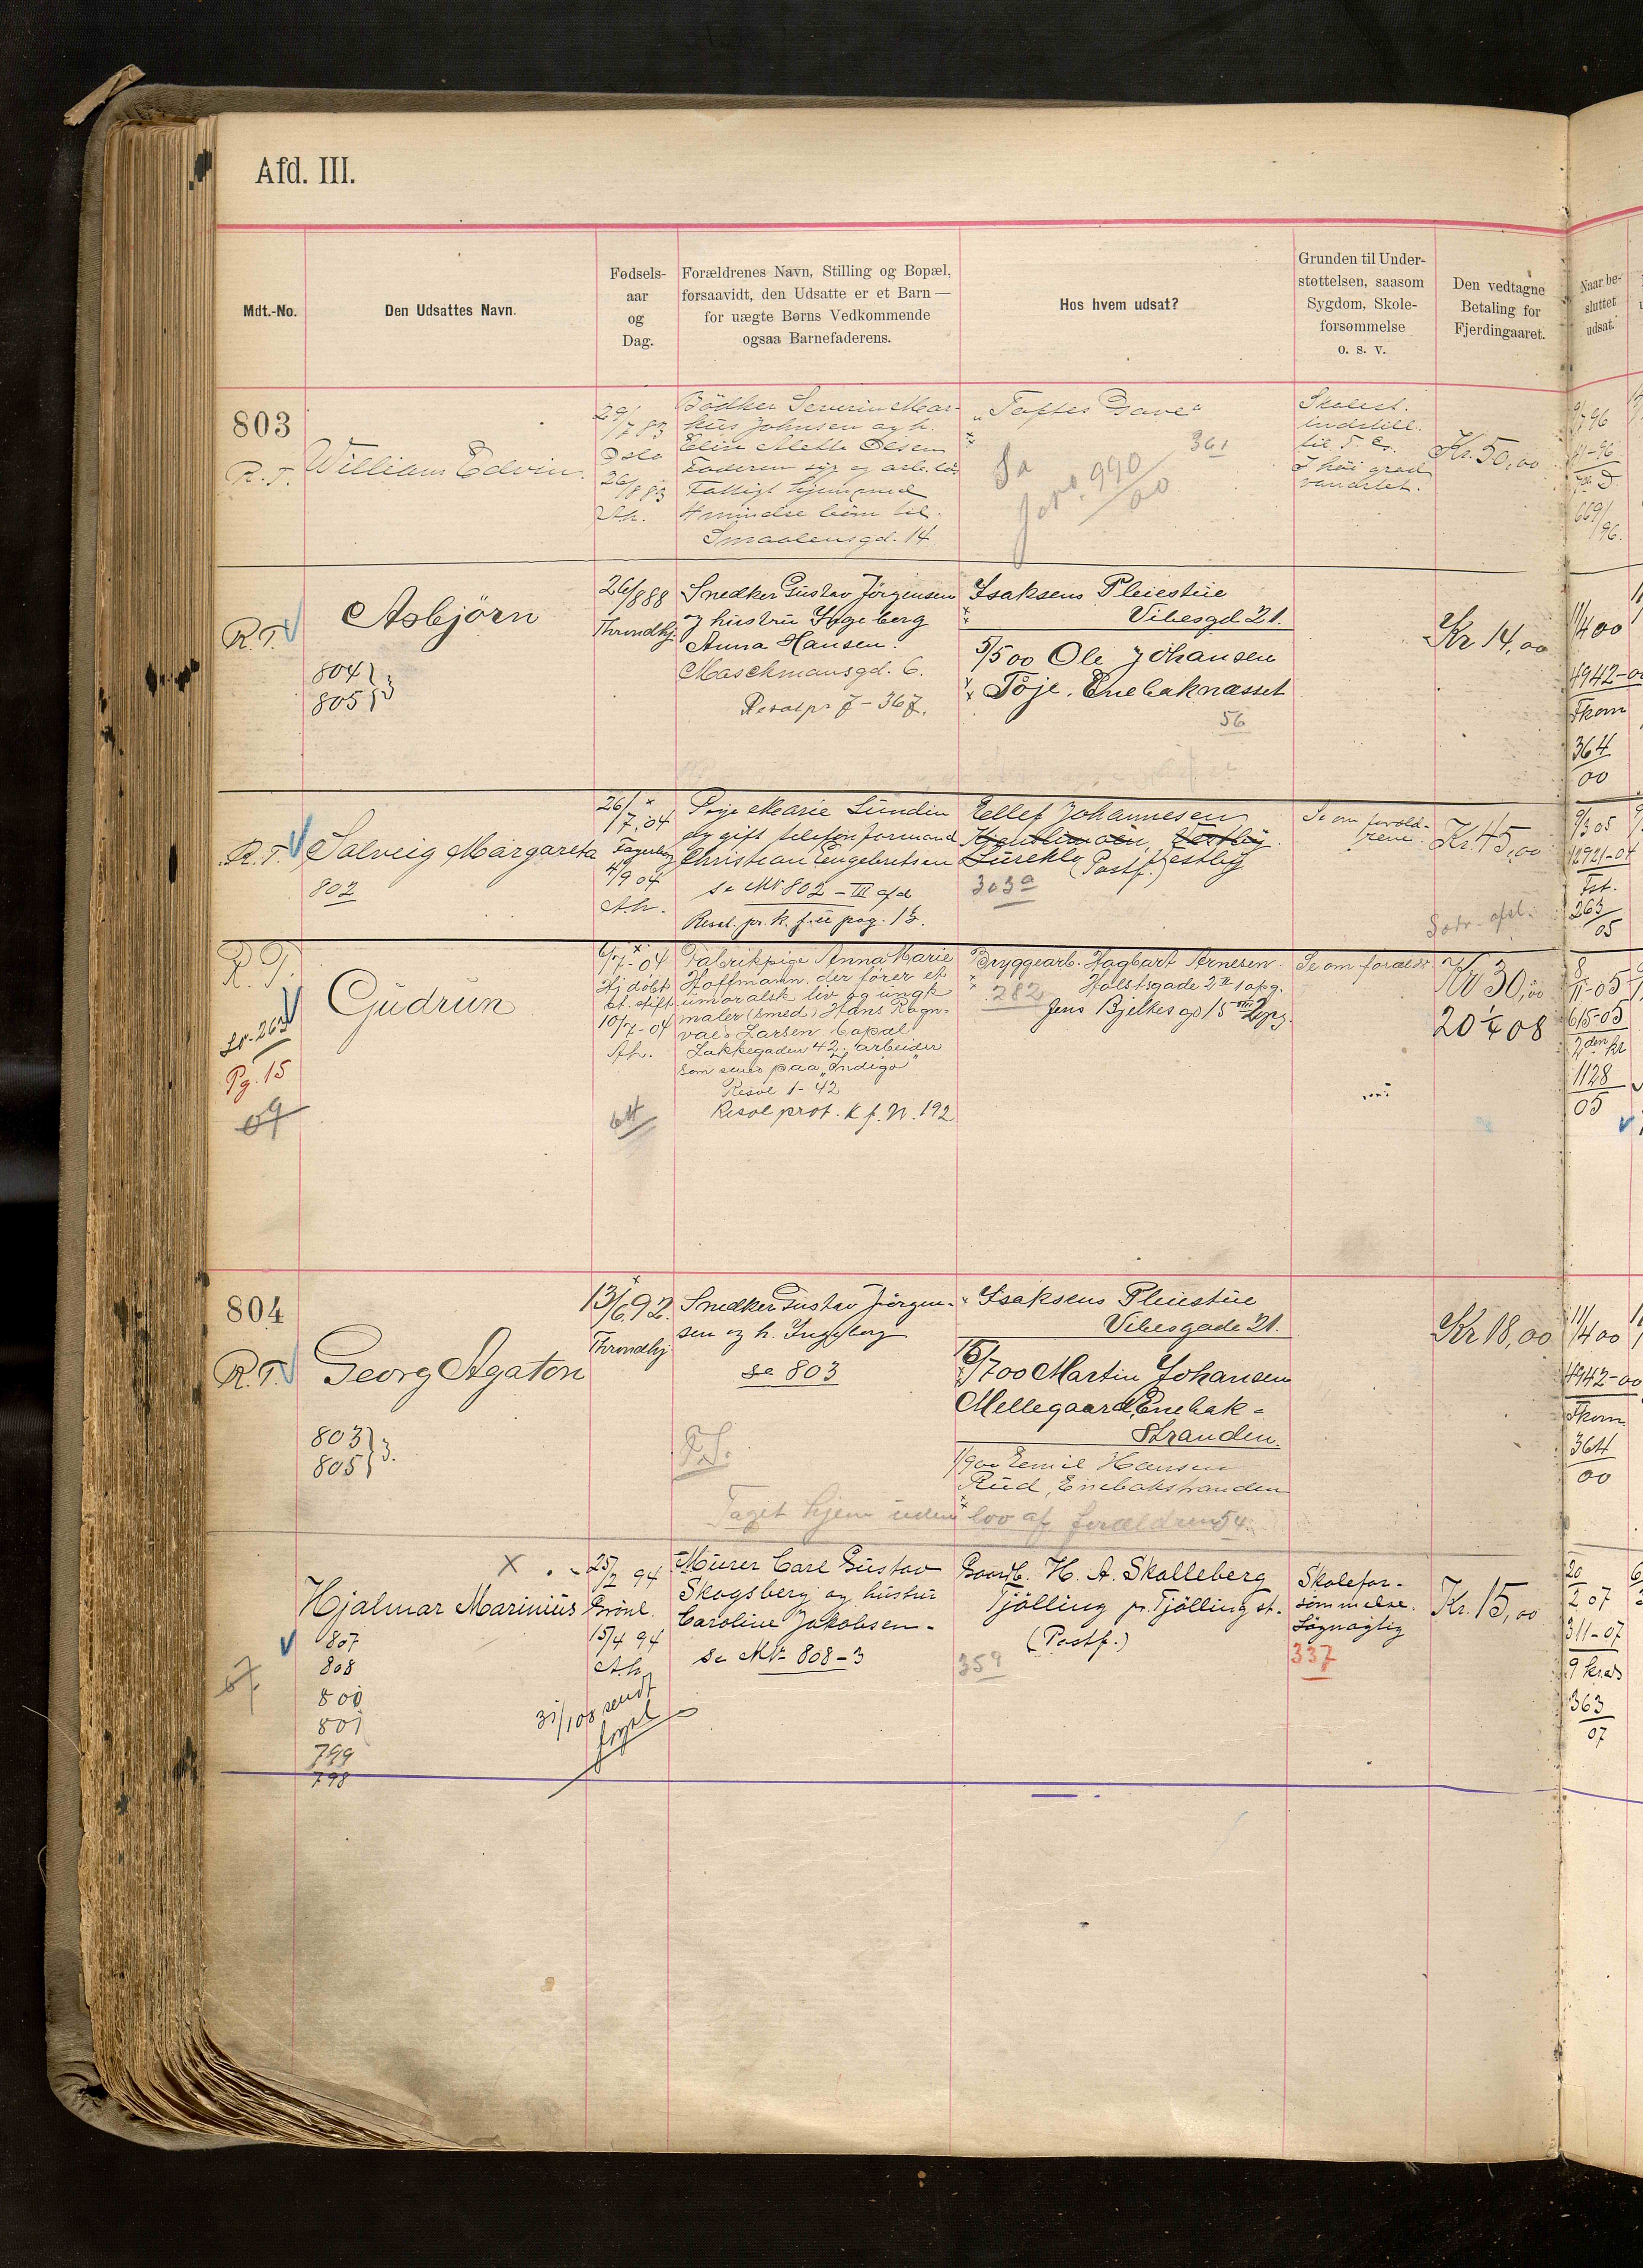 Afd. III.
Mdt.-No.
Den Udsattes Navn.
Fødsels-
aar
og
Dag.
Forældrenes Navn, Stilling og Bopæl,
forsaavidt, den Udsatte er et Barn —
for uægte Børns Vedkommende
ogsaa Barnefaderens.
Hos hvem udsat?
Grunden til Under-
støttelsen, saasom
Sygdom, Skole-
forsømmelse
o. s. v.
Den vedtagne
Betaling for
Fjerdingaaret.
Naar be-
sluttet
udsat.
803
R. T.
William Edvin.
29/7 83
Oslo
26/8 83
A.h.
Bödker Severin Mar-
kus Johnsen og h.
Elise Mette Olsen
Faderen syg og arb.løs
Fattigt hjem med
4 mindre börn til.
Smaalensgd. 14
"Toftes Gave"
361
Jorn. 990
00
Skolest.
indstill.
til T. G.
I höi grad
vanartet.
Kr. 50,00
9/7 96
669/96.
R. T.
Asbjörn
804
805 } 3
26/8 88
Throndhj.
Snedker Gustav Jörgensen
og hustru Ingeberg
Anna Hansen.
Maschmansgd. 6.
Resolpr 7 - 367.
Isaksens Pleiestue
Vibesgd 21.
5/5 00 Ole Johansen
Töje, Enebaknæsset
56
Kr 14,00
11/4 00
4942-00
Fkom
364
00
R. T.
Solveig Margareta
802
26/7.04
Fagerborg
4/9 04
A.h.
Pige Marie Lundin
dg gift telefonformand
Christian Engebretsen
se Mt 802 - III afd
Resol. pr. k. f. u pag. 13.
Tellef Johannesen
Vestby
(Postf.) Vestby
303a
Se om foræld-
rene.
Kr. 45,00
9/3 05
12921-04
Fst.
263
05
R. T.
Gudrun
Pg. 15
07
6/7-04
Hj döbt
kt. stift
10/7-04
A.h.
64
Fabrikpige Anna Marie
Hoffmann der förer et
umoralsk liv og ungk
maler (smed) Hans Ragn-
vald Larsen bopæl
Lakkegaden 42. arbeider
som smed paa "Indigo"
Resol 1-42
Resol prot. K f. N. 192
Bryggearb. Hagbart Arnesen.
Holstsgade 2 II opg.
282
Jens Bjelkes gd 15 III 2 opg.
Se om foræld
Kr 30,00
20 4 08
8/11-05
615-05
2den kr
1128
05
804
R. T.
Georg Agaton
803
805 } 3.
13/6 92.
Throndhj
Snedker Gustav Jörgen-
sen og h. Ingeborg
se 803
Isaksens Pleiestue
Vibesgade 21.
16/7 00 Martin Johansen
Mellegaard, Enebak-
Stranden.
1/9 00 Emil Hansen
Rud, Enebakstranden
Taget hjem uden lov af forældrene 54.
Kr 18,00
11/4 00
4942-00
Fkom
364
00
Hjalmar Marinius
807
808
800
801
799
798
67
25/2 94
Grönl.
15/4 94
A.h.
31/1 08 sendt
Murer Carl Gustav
Skogsberg og hustru
Caroline Jakobsen.
se Mt 808-3
Gaardb. H. A. Skalleberg
Tjölling pr. Tjölling st.
(Postf.)
359
Skolefor-
sömmelse.
Lögnagtig
337
Kr. 15,00
20
2 07
311-07
9 kreds
363
07